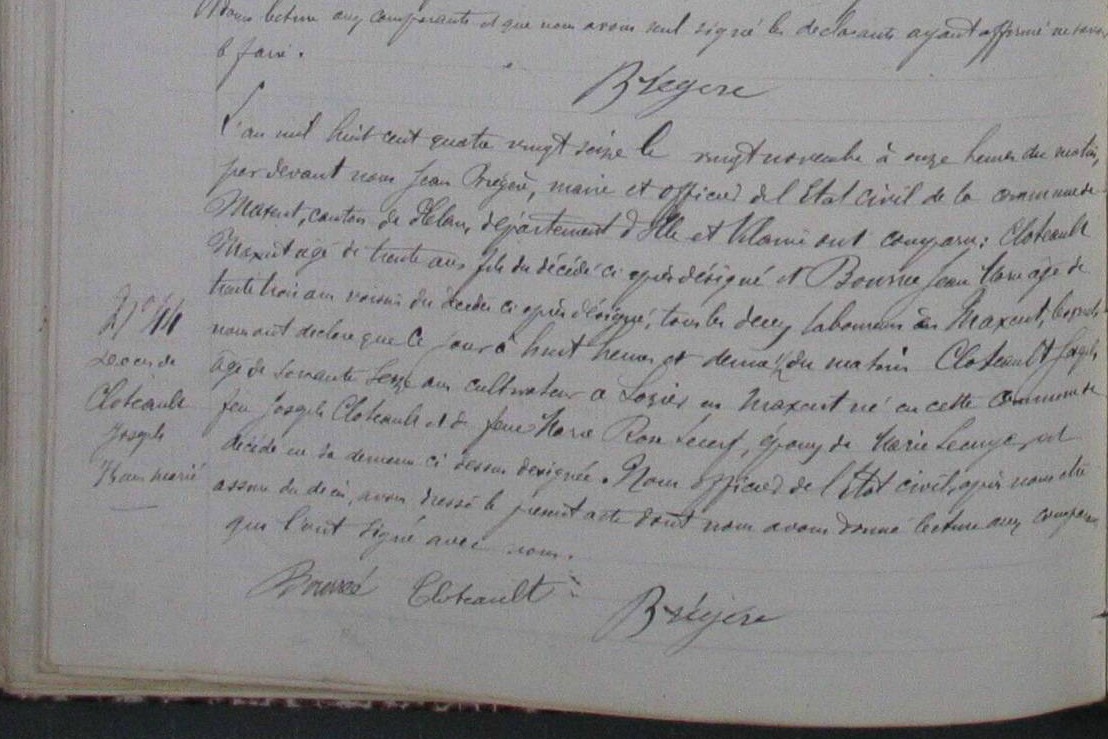 lecture aux comparants et que nous avons seul signé les déclarants ayant affirmé ne savoir
le faire.
Brégère
L'an mil huit cent quatre vingt seize le vingt novembre à onze heures du matin,
par devant nous Jean Brégère, maire et officier de l'Etat civil de la commune de
Maxent, canton de Plélan, département d'Ille et Vilaine ont comparu: Cloteault
Maxent agé de trente ans fils du décédé ci après désigné et Bourée Jean Marie agé de
trente trois ans voisin du décédé ci après désigné, tous les deux laboureurs en Maxent, lesquels
nous ont déclaré que ce jour à huit heures et demie du matin Cloteault Joseph
agé de soixante seize ans cultivateur à en Maxent né en cette commune de
feu Joseph Cloteault et de feue Marie Rose époux de Marie est
décédé en sa demeure ci dessus désignée. Nous officier de l'Etat civil, après nous être
assuré du décès, avons dressé le présent acte dont nous avons donné lecture aux comparants
qui l'ont signé avec nous.
Bourée Cloteault Brégère
N° 44
Décès de
Cloteault
Joseph
marié